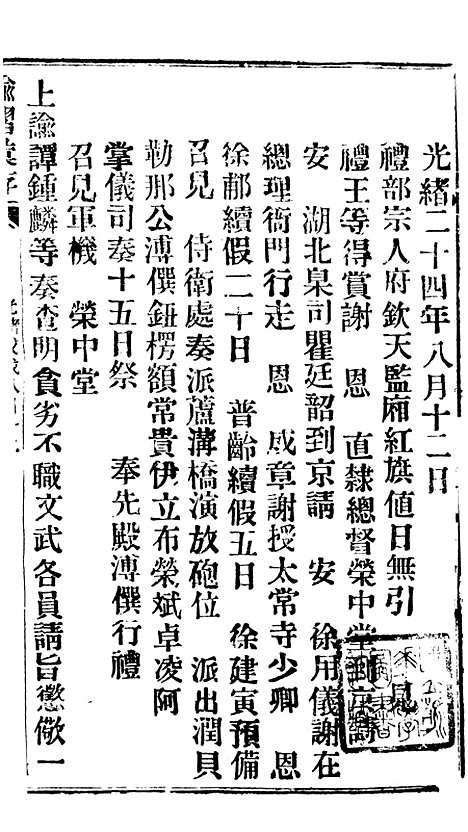 光緒二十四年八月十二日
禮部宗人府欽天監廂紅旗值日無引　見
禮王等得賞謝　恩　直隸總督榮中堂到京請
安　湖北臬司瞿廷韶到京請　安　徐用儀謝在
總理衙門行走　恩　成章謝授太常寺少卿　恩
徐郙續假二十日　普齡續假五日　徐建寅預備
召見　侍衛處奏派蘆溝橋演放砲位　派出潤貝
勒那公溥僎鈕楞額常貴伊立布榮斌卓凌阿
掌儀司奏十五日祭　奉先殿溥僎行禮
召見軍機　榮中堂
上諭譚鍾麟等奏查明貪劣不職文武各員請旨懲儆一
諭摺彙存